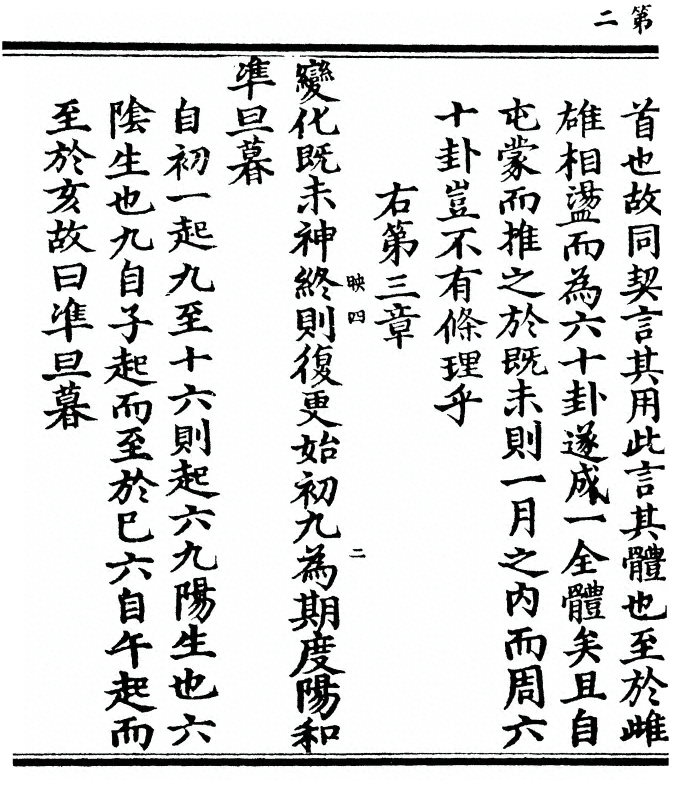 第二
首也故同契言其用此言其體也至於雌
雄相盪而為六十卦遂成一全體矣且自
屯蒙而推之於既未則一月之內而周六
十卦豈不有條理乎
右第三章
映四
二
變化既未神終則復更始初九為期度陽和
準旦暮
自初一起九至十六則起六九陽生也六
陰生也九自子起而至於巳六自午起而
至於亥故曰準旦暮